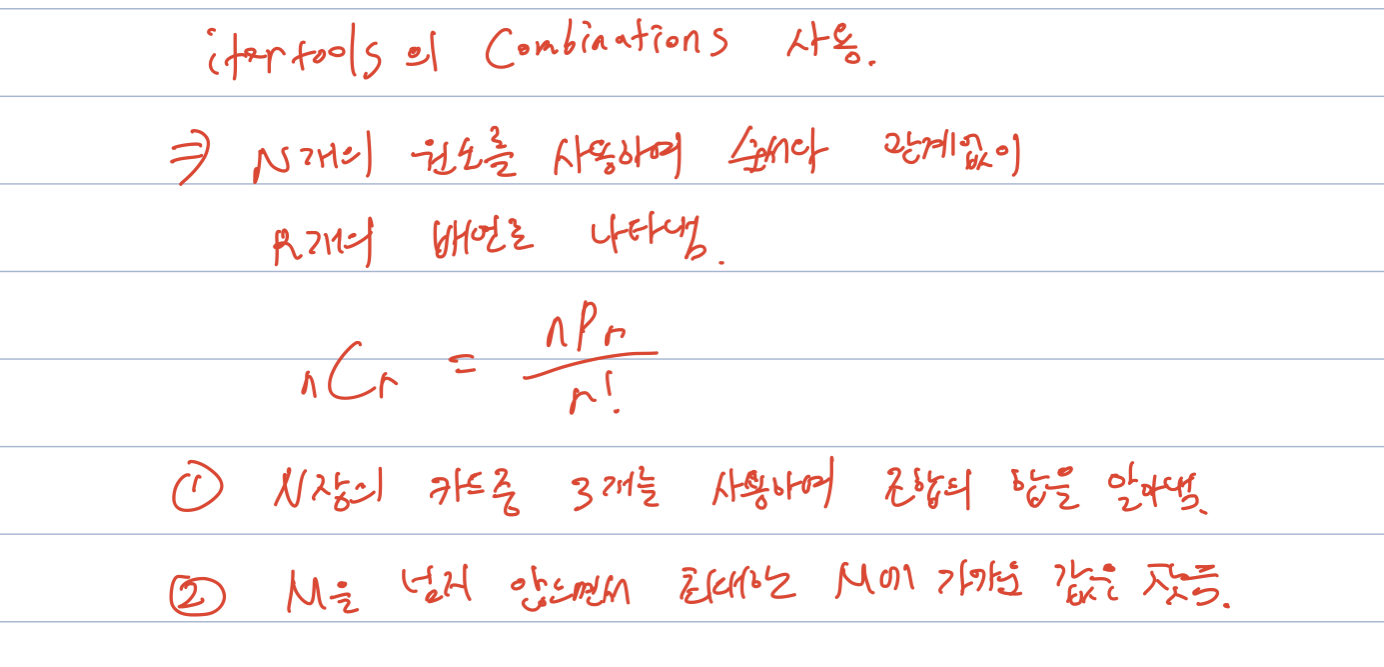 itertools의 Combinations 사용.
⇒ N개의 원소를 사용하여 순서와 관계없이
R개의 배열로 나타냄.
nCr = nPr / r!
① N장의 카드중 3개를 사용하여 조합의 합을 알아냄.
② M을 넘지 않으면서 최대한 M에 가까운 값을 찾음.